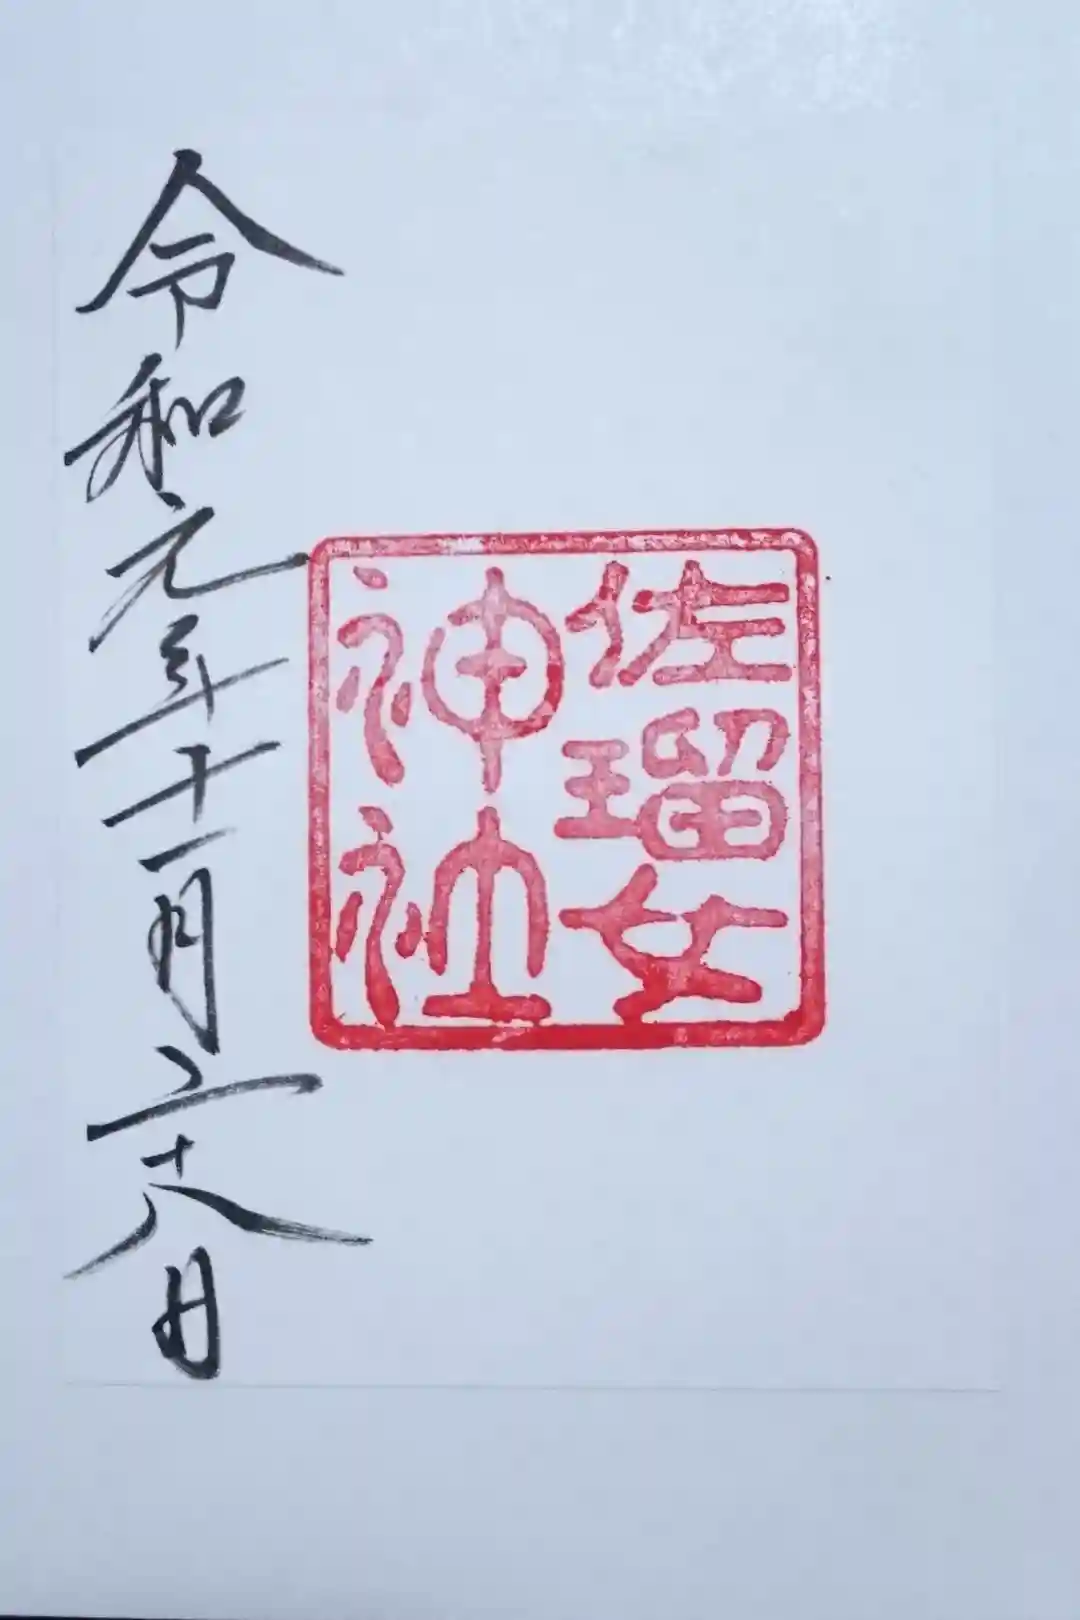 佐瑠女
神社
令和元年十一月二十八日